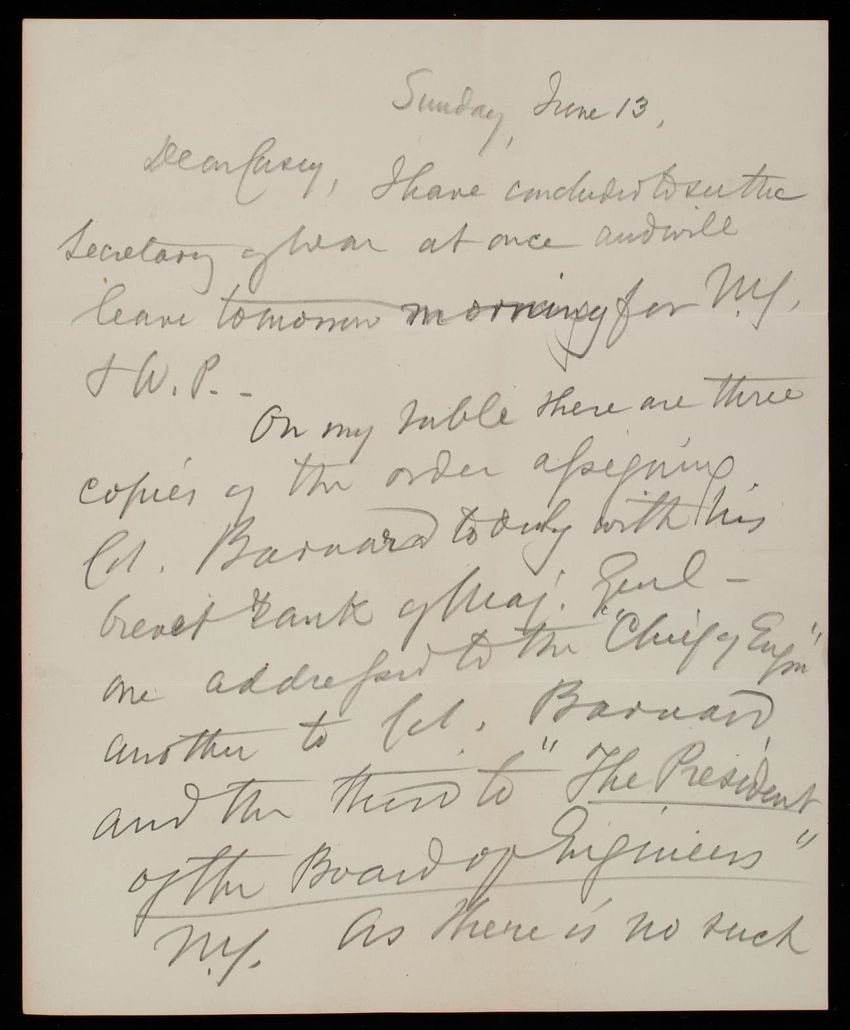 Sunday, June 13,
Dear Casey, I have concluded to see the
Secretary of War at once and will
leave tomorrow morning for N.Y.
& W. P. -
On my table there are three
copies of the order assigning
Col. Barnard to duty with his
brevet rank of Maj. Genl -
one addressed to the "Chief of Engrs"
another to Col. Barnard,
and the third to "The President
of the Board of Engineers"
N.Y. As there is no such